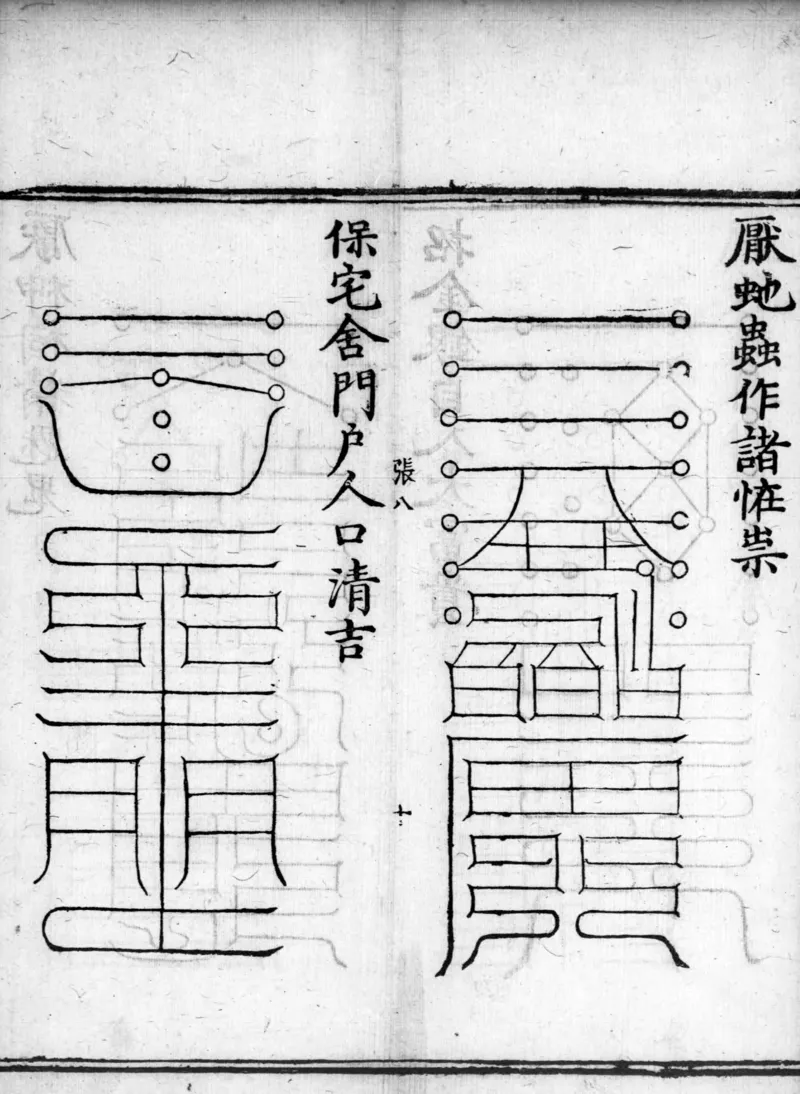 厭虵蟲作諸恠祟
張八
十
保宅舍門户人口清吉